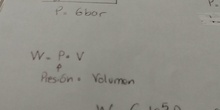 P= 6bar
P.
W= P•V
Presión • Volumen